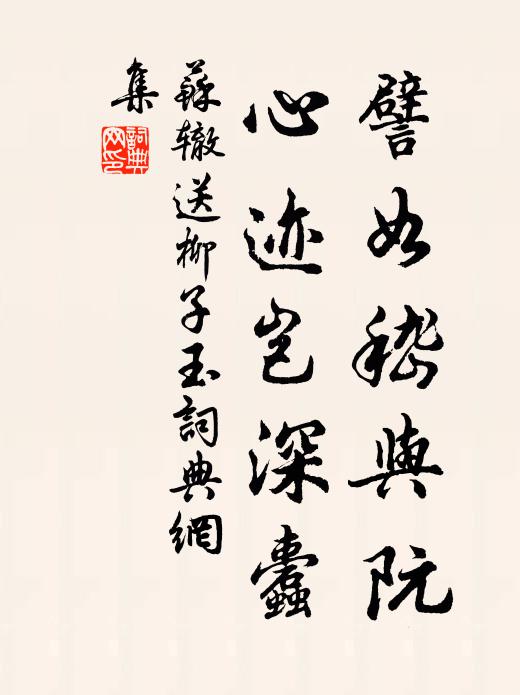 譬如嵇與阮
心迹岂深蠹
蘇辙送柳子玉詞典網
集
詞典
网印